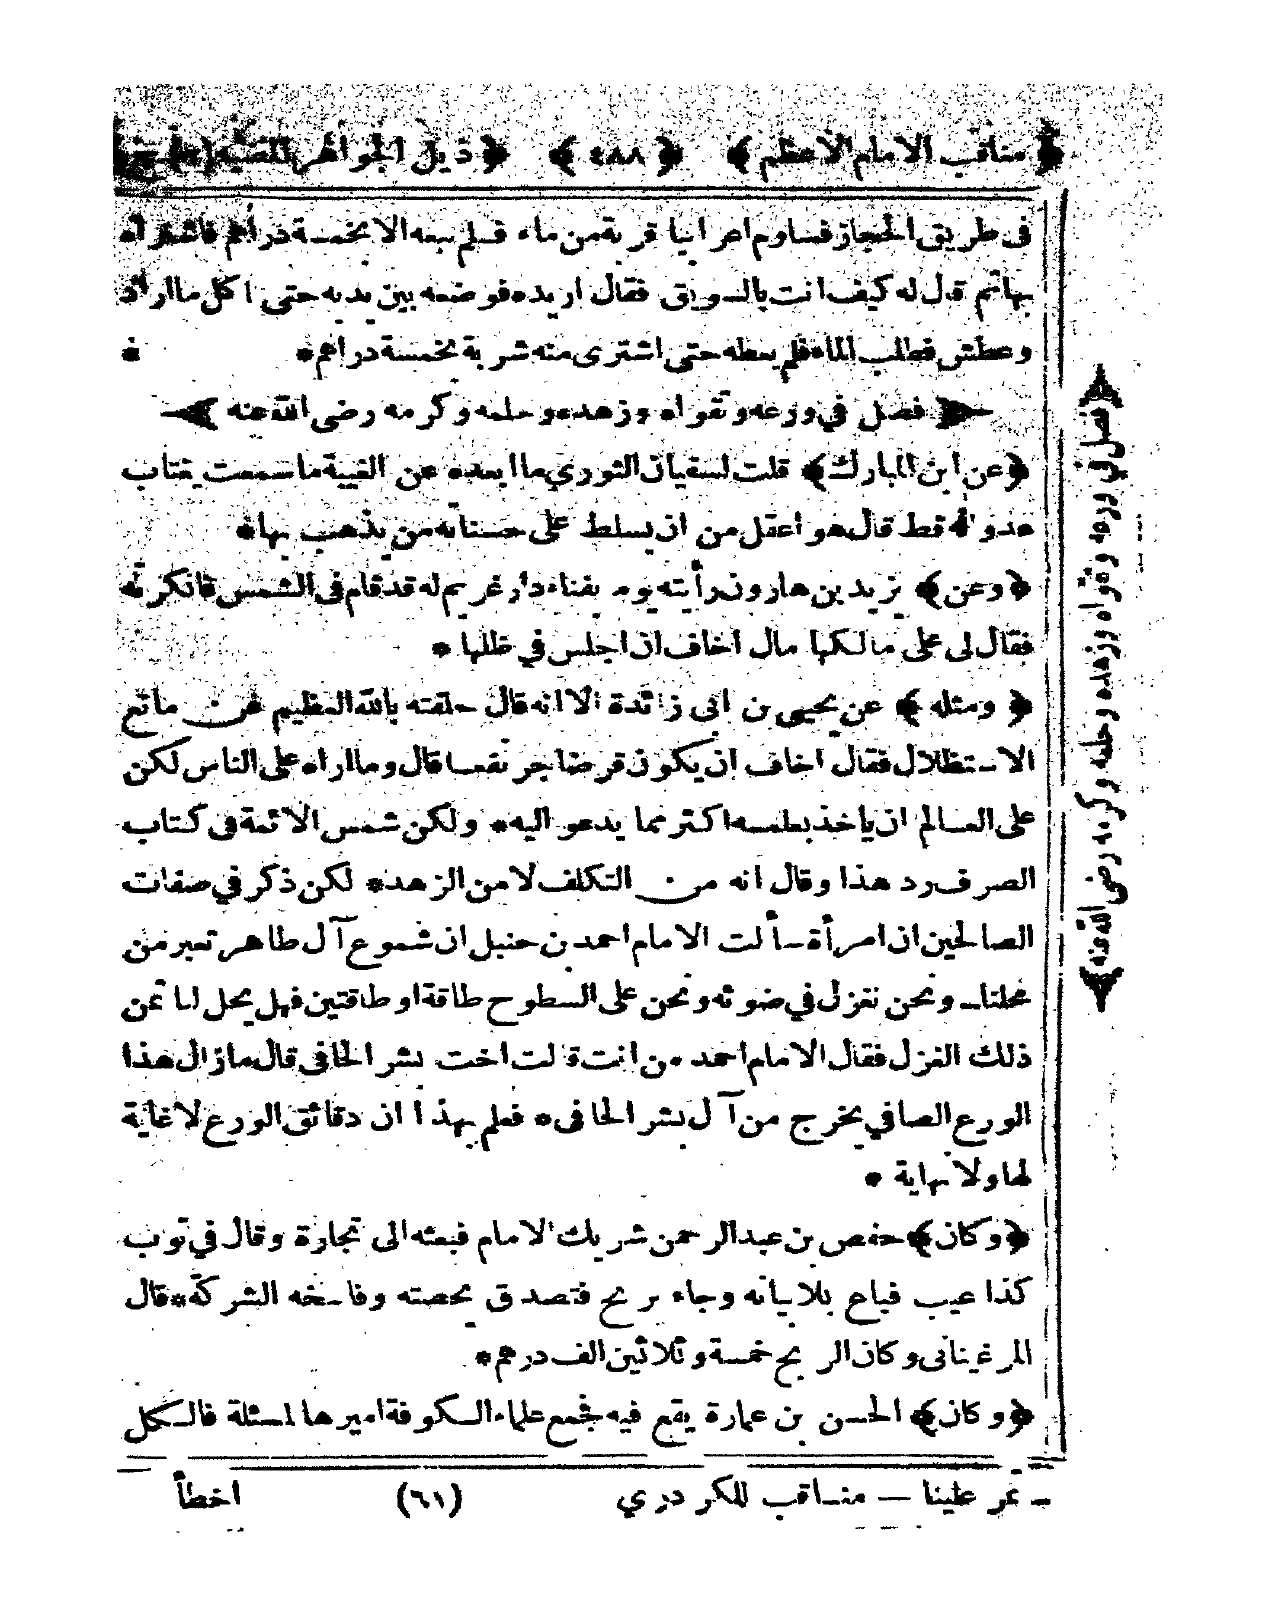 ﴿مناقب الامام الاعظم﴾ ﴿٤٨٨﴾ ﴿ذيل الجواهر المضيه
فى طريق الحجاز فساوم اعرابيا قربة من ماء فلم يبعه الا بخمسة دراهم فاشتراه
بها ثم قال له كيف انت بالسويق فقال اريده فوضعه بين يديه حتى اكل ما اراد
وعطش فطلب الماء فلم يعطه حتى اشترى منه شربة بخمسة دراهم *
﴿فصل في ورعه وتقواه وزهده وحلمه وكرمه رضى الله عنه﴾
﴿عن ابن المبارك﴾ قلت لسفيان الثوري ما ابعده عن الغيبة ما سمعت يغتاب
عدوا له قط قال هو اعقل من ان يسلط على حسناته من يذهب بها *
﴿وعن﴾ يزيد بن هارون رأيته يوم بفناء دار غريم له قد قام فى الشمس فانكرته
فقال لى على مالكها مال اخاف ان اجلس في ظلها *
﴿ومثله﴾ عن يحيى بن ابى زائدة الا انه قال حلفته بالله العظيم عن مانع
الاستظلال فقال اخاف ان يكون قرضا جر نفعا قال وما اراه على الناس لكن
على العالم ان ياخذ بعلمه اكثر مما يدعو اليه * ولكن شمس الائمة فى كتاب
الصرف رد هذا وقال انه من التكلف لا من الزهد * لكن ذكر في صفات
الصالحين ان امرأة سألت الامام احمد بن حنبل ان شموع آل طاهر تعبر من
محلتنا ـ ونحن نغزل في ضوئه ونحن على السطوح طاقة او طاقتين فهل يحل لنا ثمن
ذلك الغزل فقال الامام احمد من انت قالت اخت بشر الحافى قال مازال هذا
الورع الصافي يخرج من آل بشر الحافى * فعلم بهذا ان دقائق الورع لا غاية
لها ولا نهاية *
﴿وكان﴾ حفص بن عبد الرحمن شريك الامام فبعثه الى تجارة وقال في ثوب
كذا عيب فباع بلا بيانه وجاء بربح فتصدق بحصته وفاسخه الشركة * قال
المرغينانى وكان الربح خمسة وثلاثين الف درهم *
﴿وكان﴾ الحسن بن عمارة يقع فيه فجمع علماء الكوفة اميرها لمسئلة فالكل
ـ تمر علينا — مناقب للكردري (٦١) اخطأ
﴿فصل في ورعه وتقواه وزهده وحلمه وكرمه رضى الله عنه﴾